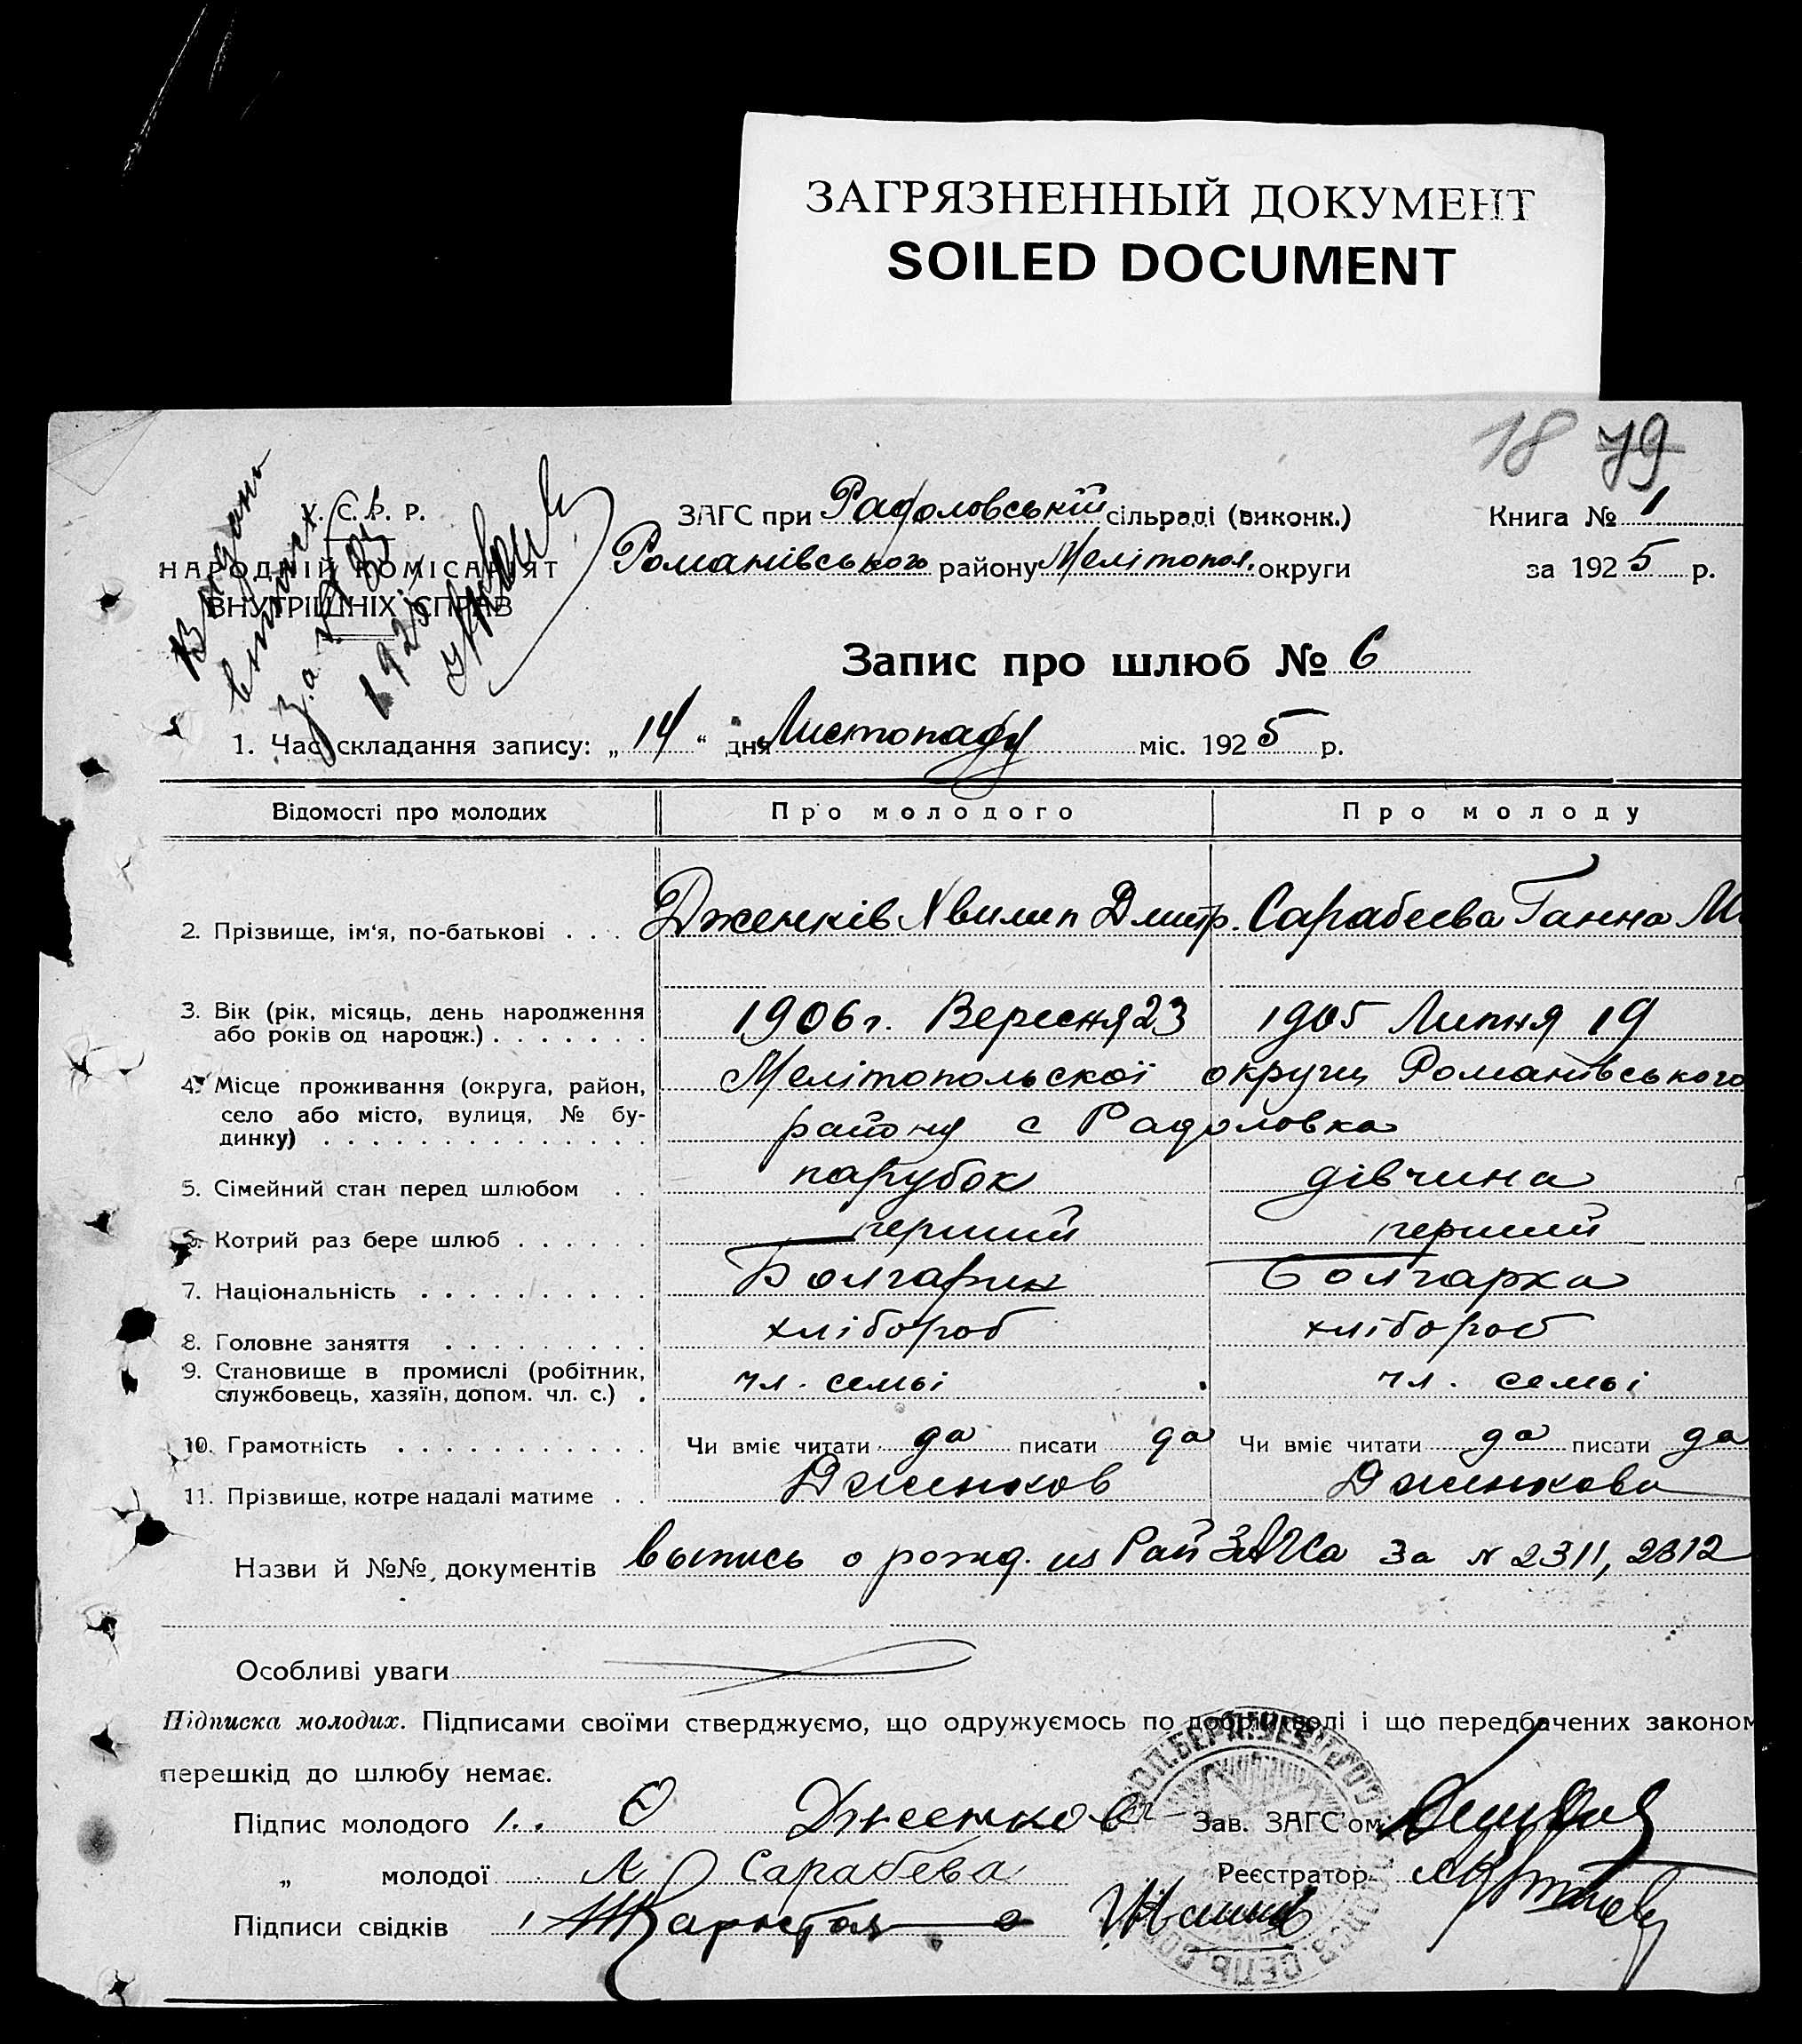 ЗАГРЯЗНЕННЫЙ ДОКУМЕНТ
SOILED DOCUMENT
18 79
У. С. Р. Р.
НАРОДНІЙ КОМІСАРІЯТ
ВНУТРІШНІХ СПРАВ
ЗАГС при Радоловській сільраді (виконк.)
Романівського району Мелітопол. округи
Книга № 1
за 1925 р.
Запис про шлюб № 6
1. Час складання запису: „14“ дня Листопаду міс. 1925 р.
Відомості про молодих Про молодого Про молоду
2. Прізвище, ім'я, по-батькові . . . Дженків Хвилип Дмитр. Сарабеева Ганна М
3. Вік (рік, місяць, день народження
або років од народж.) . . . . . . . 1906 г. Вересня 23 1905 Липня 19
4. Місце проживання (округа, район, Мелітопольскої округи Романівського
село або місто, вулиця, № бу-
динку) . . . . . . . . . . . . . . району с Радоловка
5. Сімейний стан перед шлюбом . . парубок дівчина
6. Котрий раз бере шлюб . . . . . . перший перший
7. Національність . . . . . . . . . . Болгарин Болгарка
8. Головне заняття . . . . . . . . . хлібороб хлібороб
9. Становище в промислі (робітник,
службовець, хазяїн, допом. чл. с.) . чл. семьі чл. семьі
10. Грамотність . . . . . . . . . . . Чи вміє читати да писати да Чи вміє читати да писати да
11. Прізвище, котре надалі матиме . . Дженков Дженкова
Назви й №№ документів выпись о рожд. из Рай ЗАГСа за N 2311, 2312
Особливі уваги
Підписка молодих. Підписами своїми стверджуємо, що одружуємось по добрій волі і що передбачених законом
перешкід до шлюбу немає.
Підпис молодого 1. Ѳ Дженков Зав. ЗАГС'ом
„ молодої А Сарабева Реєстратор
Підписи свідків